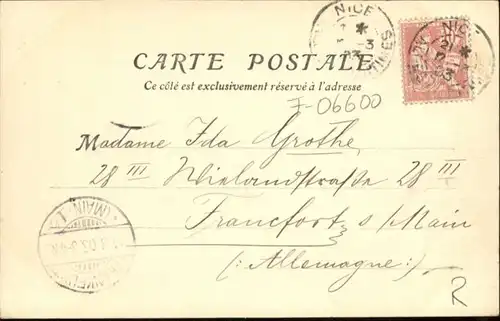 NICE
NICE
CARTE POSTALE
Ce côté est exclusivement réservé à l'adresse
F-06600
Madame Ida Grothe,
28 III Wielandstraße 28 III
Francfort s/Main
(: Allemagne :)
(MAIN)
R